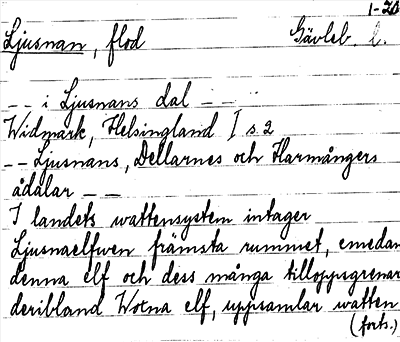 1-20
Ljusnan, flod Gävleb. l.
-- i Ljusnans dal --
Widmark, Helsingland I s 2
-- Ljusnans, Dellarnes och Harmångers
ådalar --
I landets wattensystem intager
Ljusnaelfwen främsta rummet, emedan
denna elf och dess många tilloppsgrenar
deribland Wotna elf, uppsamlar watten
(forts.)